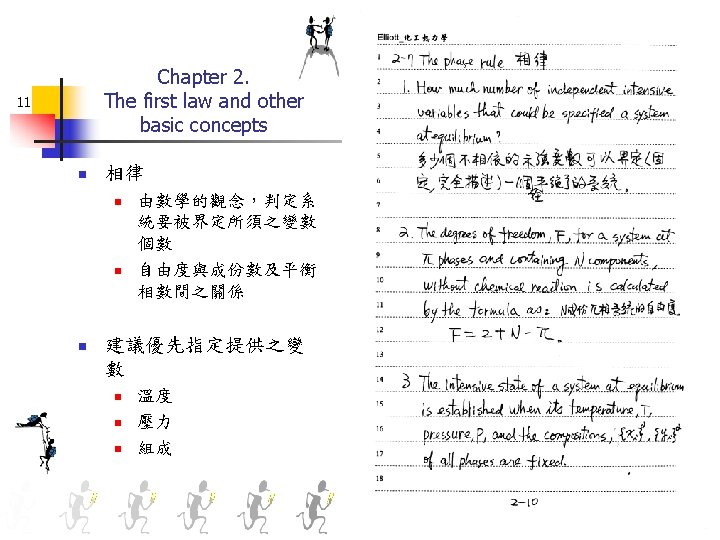 Chapter 2.
The first law and other
basic concepts
11
相律
由數學的觀念，判定系
統要被界定所須之變數
個數
自由度與成份數及平衡
相數間之關係
建議優先指定提供之變
數
溫度
壓力
組成
Elliott_化工熱力學
1 2-7 The phase rule 相律
2 1. How much number of independent intensive
3 variables that could be specified a system
4 at equilibrium?
5 多少個不相依的示強度數可以界定(固
6 定,完全描述)一個平衡的系統.
7 在
8 2. The degrees of freedom, F, for a system at
9 π phases and containing N components,
10 without chemical reaction is calculated
11 by the formula as: N成份π相系統的自由度
12 F = 2 + N - π.
13
14 3 The intensive state of a system at equilibrium
15 is established when its temperature, T,
16 pressure, P, and the compositions,
17 of all phases are fixed.
18
2-10